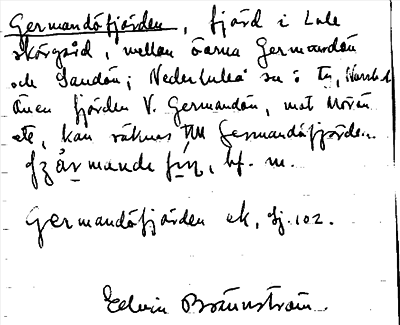 Germandöfjärden, fjärd i Lule
skärgård, mellan öarna Germandön
och Sandön; Nederluleå sn o tg,
Även fjärden V. Germandön, mot
etc, kan räknas till Germandöfjärden.
mande
Germandöfjärden ek, bj. 102.
Edvin Brännström